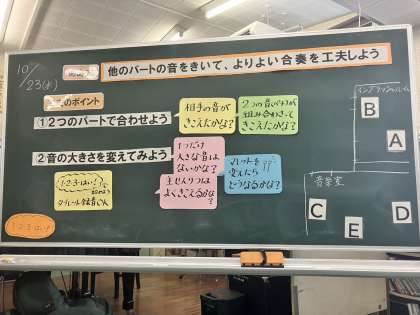 10/23(水)
他のパートの音をきいて、よりよい合奏を工夫しよう
のポイント
①2つのパートで合わせよう
相手の音が
きこえたかな?
2つの音がわが
組み合わさって
きこえたかな?
②音の大きさを変えてみよう
1つだけ
大きな音は
ないかな?
主せんりつは
よくきこえるかな?
マレットを
変えたら
どうなるかな?
1・2・3・はい!
1・2・3・はい!
音楽室
B
A
C
E
D